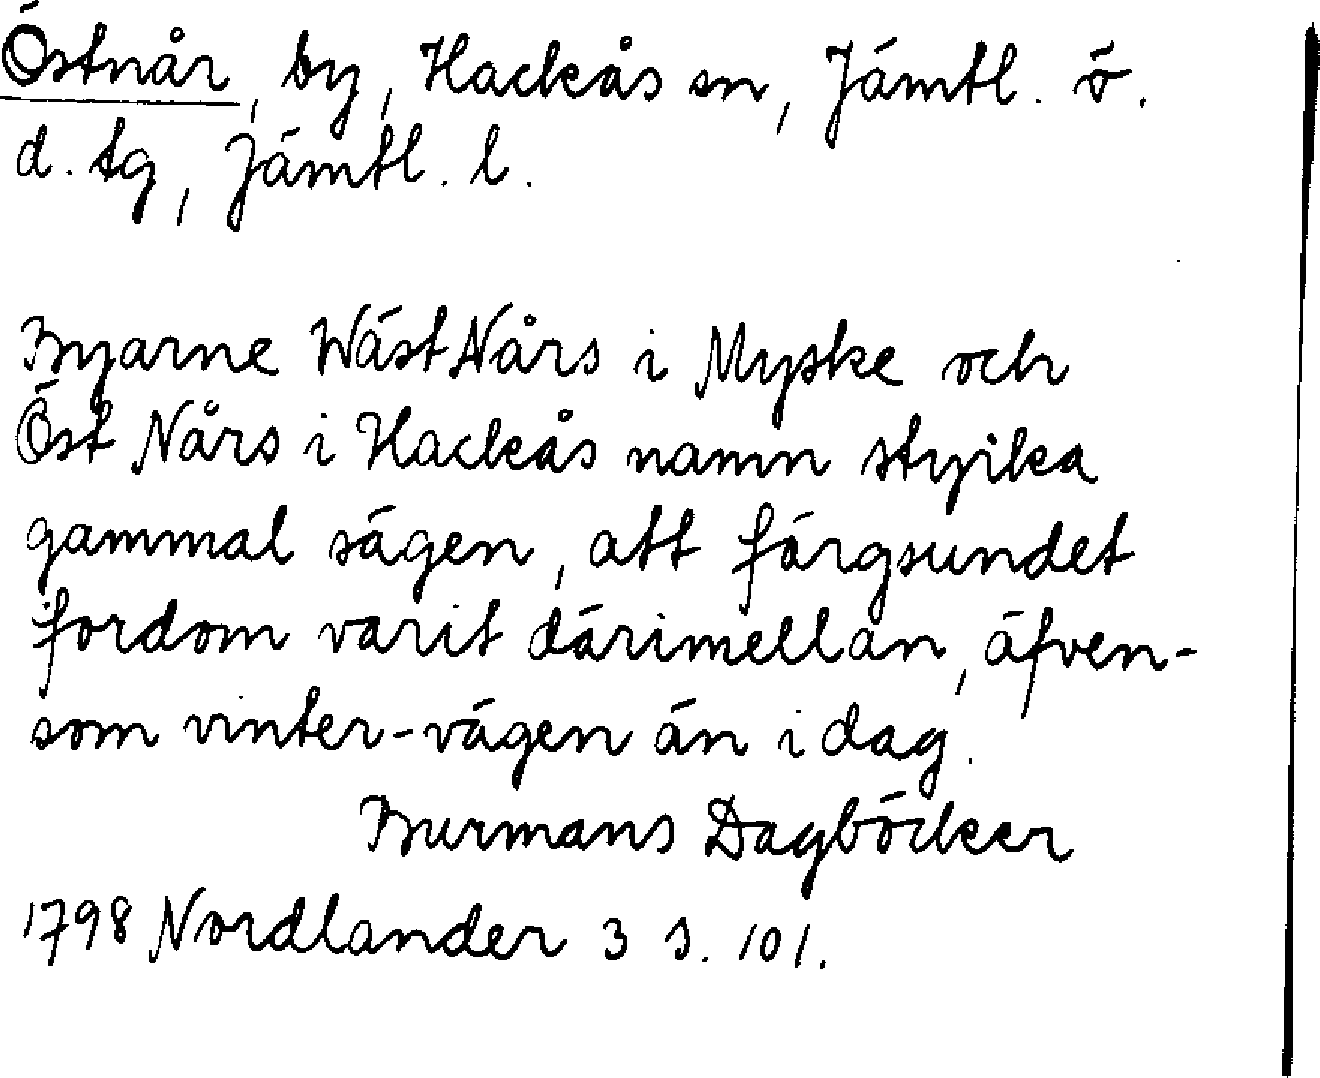 Östnår, by, Hackås sn, Jämtl. ö.
d. tg, Jämtl. l.
Byarne WästNårs i Myske och
Öst Nårs i Hackås namn styrka
gammal sägen, att färgsundet
fordom varit därimellan, äfven-
som vinter-vägen än i dag.
Burmans Dagböcker
1798 Nordlander 3 s. 101.